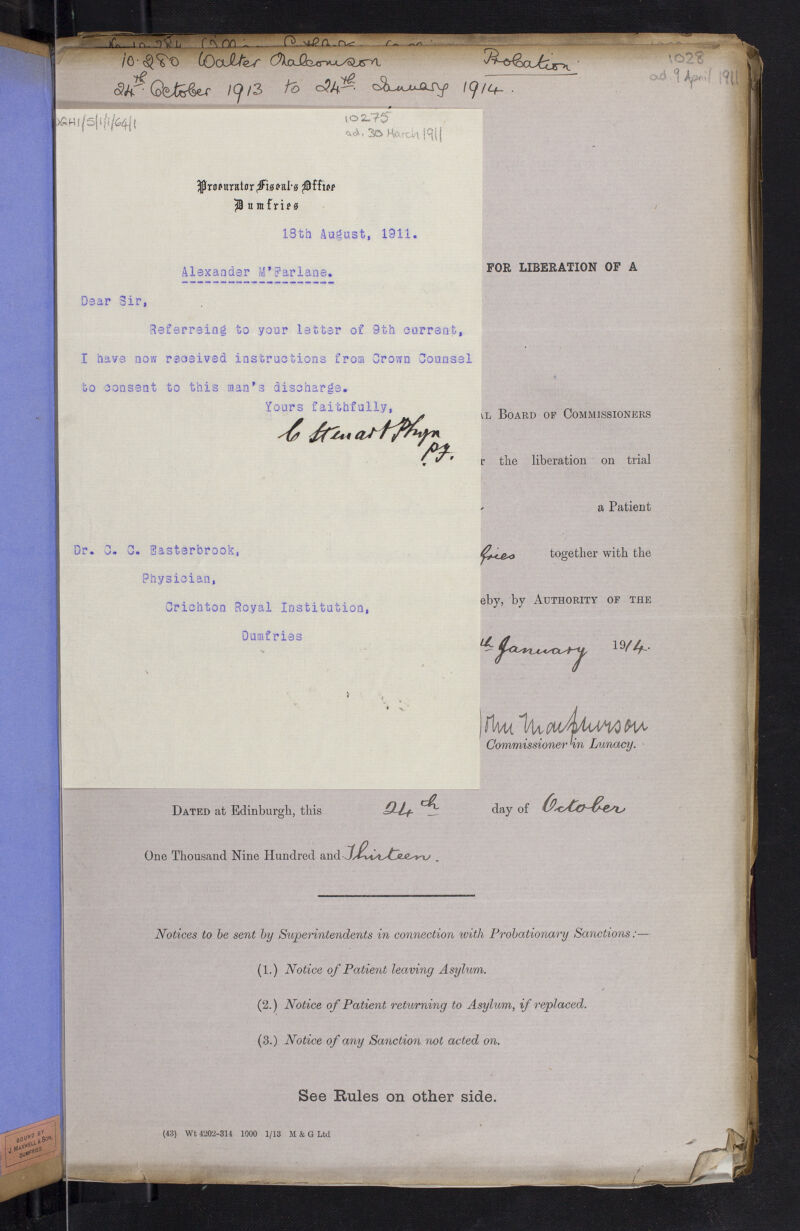 10·280 Walter Malcomson Probation
24th October 1913 to 24th January 1914.
1028
ad. 9 April 1911
DGH1/5/1/1/64/1
10275
ad. 30 March 1911
Procurator Fiscal's Office
Dumfries
18th August, 1911.
Alexander M'Farlane.
Dear Sir,
Referreing to your letter of 9th current,
I have now received instructions from Crown Counsel
to consent to this man's discharge.
Yours faithfully,
C Steuart Phyn
P.F.
Dr. C. C. Easterbrook,
Physician,
Crichton Royal Institution,
Dumfries
FOR LIBERATION OF A
AL BOARD OF COMMISSIONERS
r the liberation on trial
a Patient
fries together with the
eby, by AUTHORITY OF THE
th January 1914.
John Macpherson
Commissioner in Lunacy.
DATED at Edinburgh, this 24th day of October
One Thousand Nine Hundred and Thirteen.
Notices to be sent by Superintendents in connection with Probationary Sanctions:—
(1.) Notice of Patient leaving Asylum.
(2.) Notice of Patient returning to Asylum, if replaced.
(3.) Notice of any Sanction not acted on.
See Rules on other side.
(43) Wt 4202-314 1000 1/13 M & G Ltd
BOUND BY
J. MAXWELL & SON,
DUMFRIES